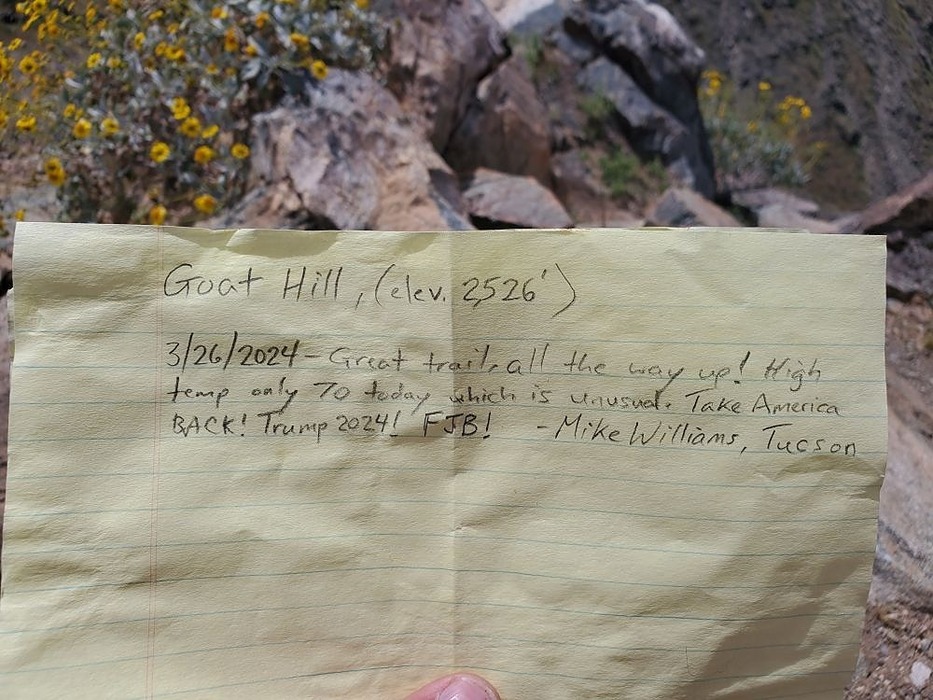 Goat Hill, (elev. 2,526')
3/26/2024 - Great trail, all the way up! High
temp only 70 today which is unusual. Take America
BACK! Trump 2024! FJB! - Mike Williams, Tucson